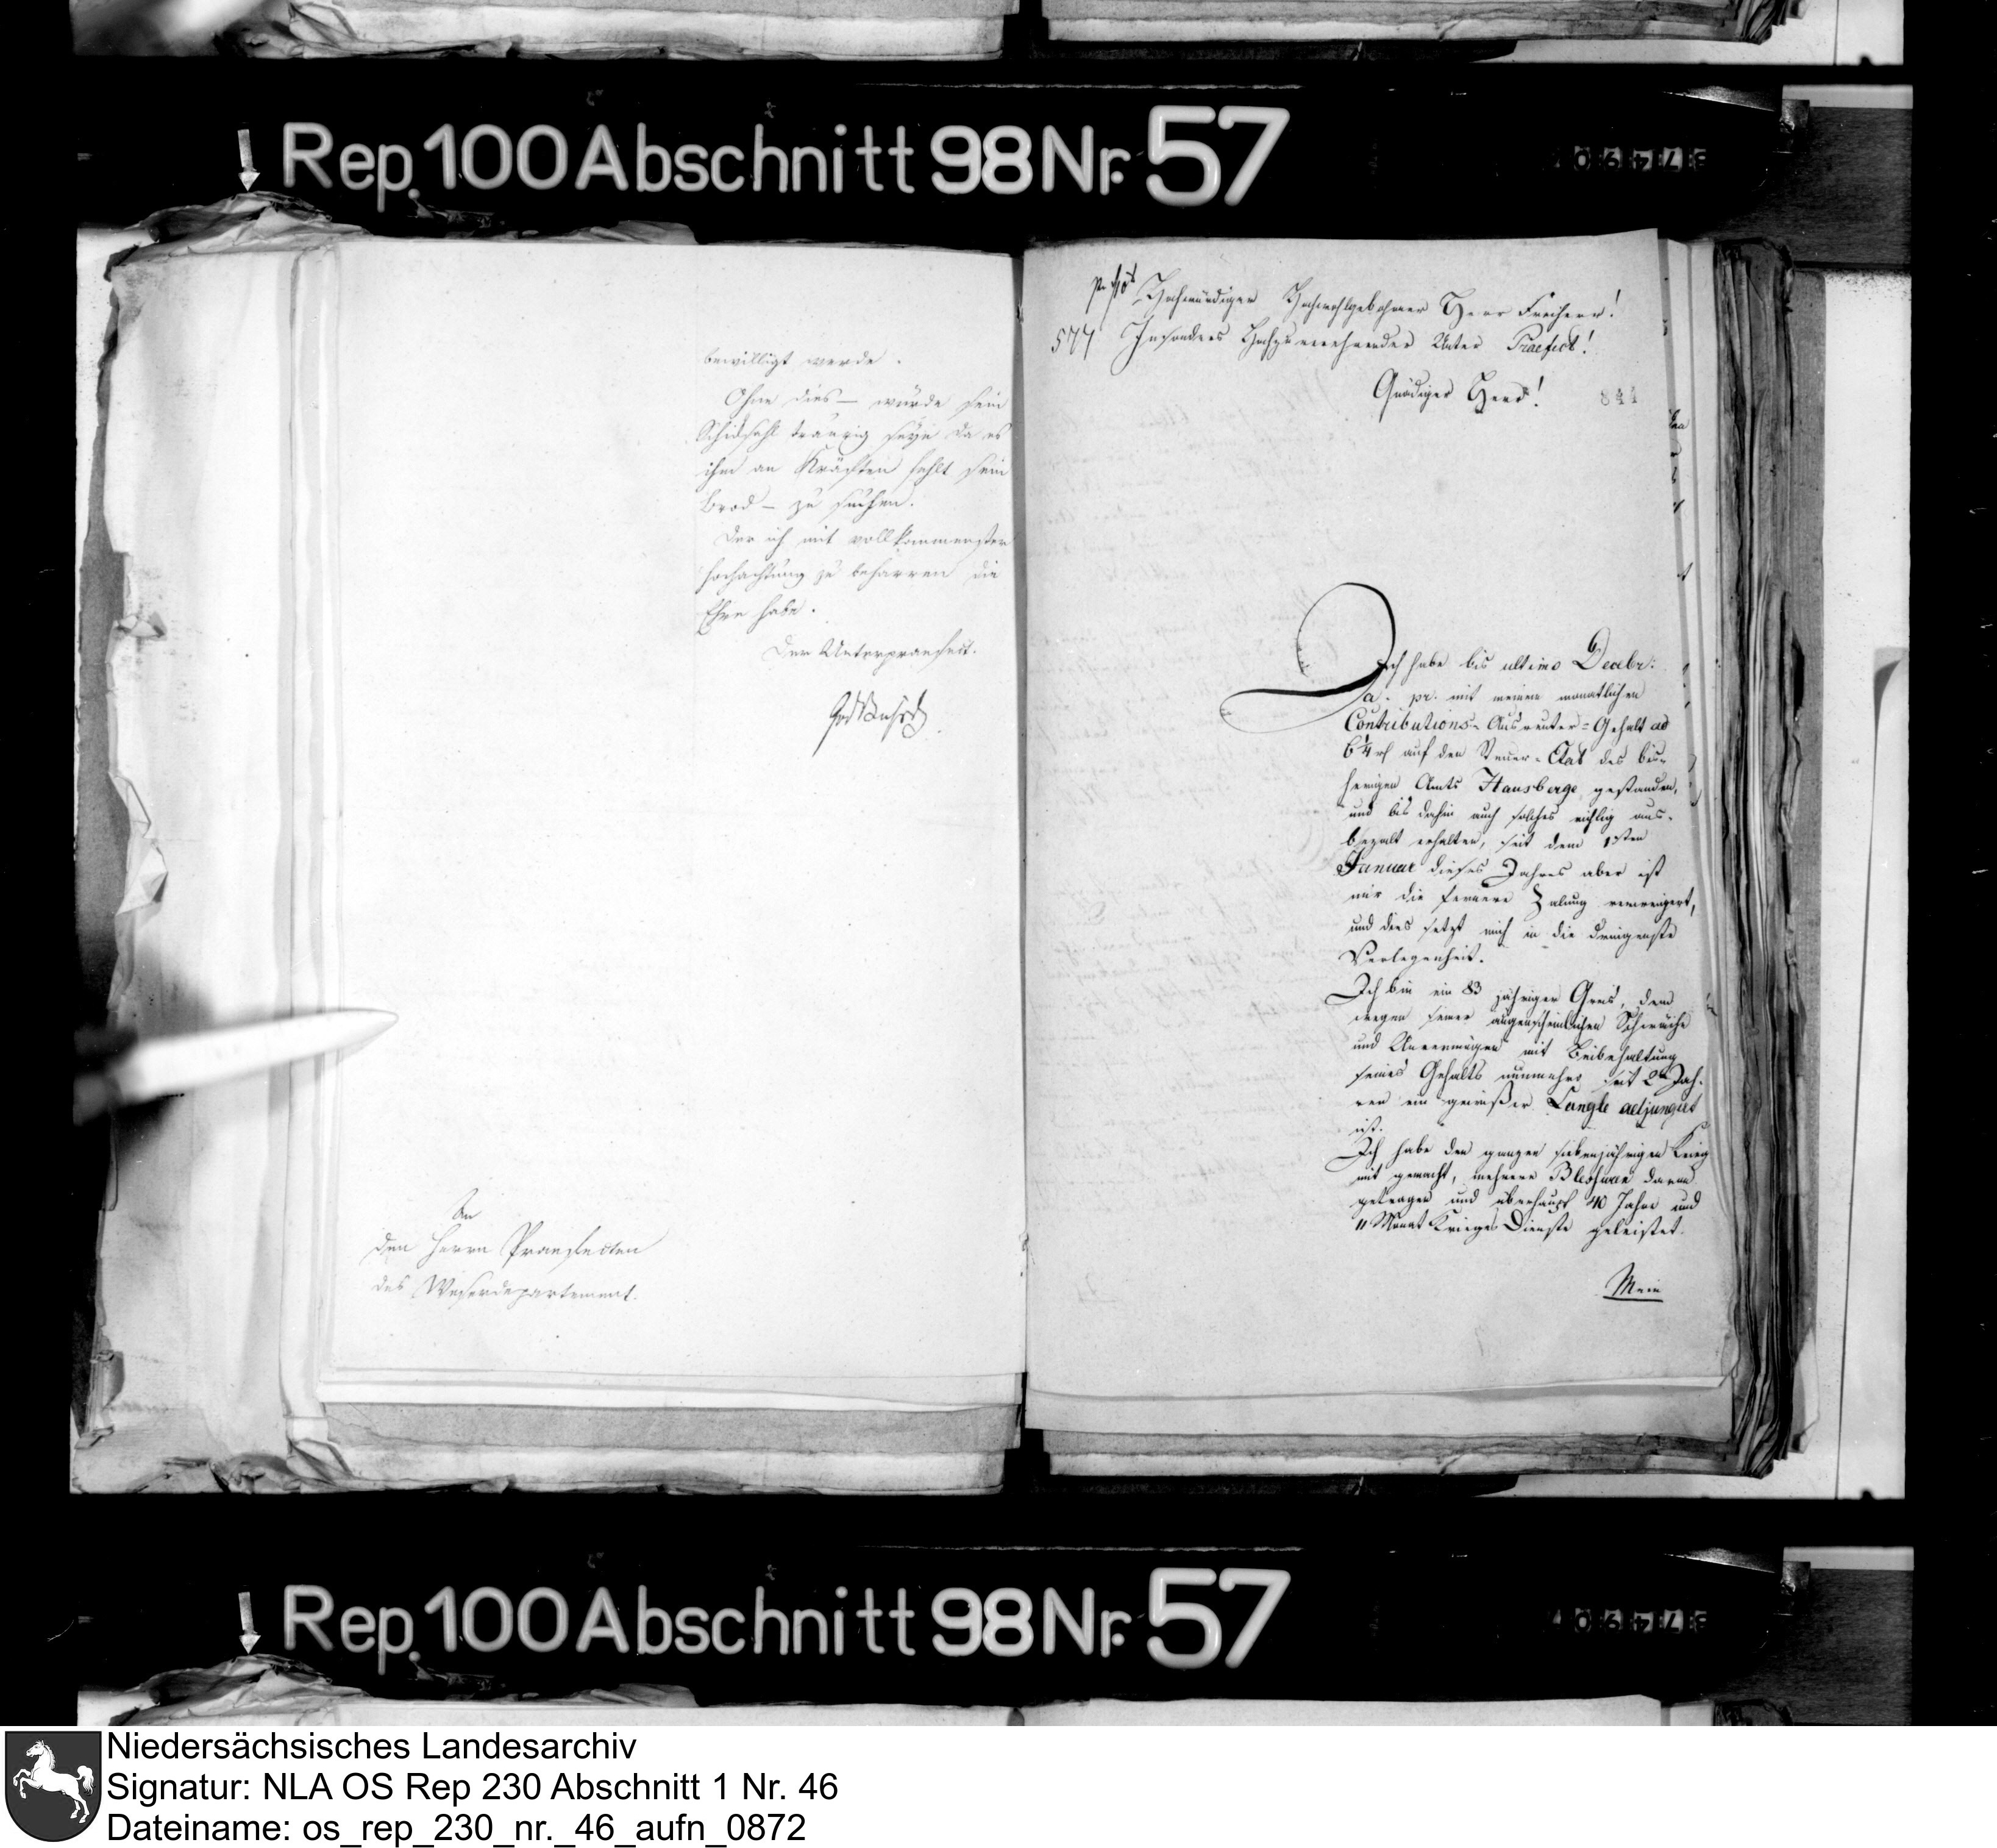 Rep. 100 Abschnitt 98 Nr. 57
bewilligt werde.
Ohne dies — würde sein
Schicksahl traurig seyn da es
ihm an Kräften fehlt sein
Brod — zu suchen.
Der ich mit vollkommenster
Hochachtung zu beharren die
Ehre habe.
Der Unterpraefect.
An
den Herrn Praefecten
des Weserdepartement.
Hochwürdiger Hochwohlgebohrner Herr Freiherr!
577 Insonders Hochzuverehrender Unter Praefect!
Gnädiger Herr!
844
Ich habe bis ultimo Decbr:
a. pr. mit meinem monatlichen
Contributions-Ausreuter-Gehalt ad
6 1/4 rl auf den Steuer-Etat des bis-
herigen Amts Hausberge gestanden,
und bis dahin auch solches richtig aus-
bezalt erhalten, seit dem 1sten
Januar dieses Jahres aber ist
mir die fernere Zalung verweigert,
und dies setzt mich in die dringenste
Verlegenheit.
Ich bin ein 83 jähriger Greis, dem
wegen seiner augenscheinlichen Schwäche
und Unvermögen mit Beibehaltung
seines Gehalts nunmehro seit 2 Jah-
ren ein gewisser Langle adjungirt
ist.
Ich habe den ganzen siebenjährigen Krieg
mit gemacht, mehrere Blessuren davon
getragen und überhaupt 40 Jahre und
11 Monat Krieges Dienste geleistet.
Mein
Rep. 100 Abschnitt 98 Nr. 57
Niedersächsisches Landesarchiv
Signatur: NLA OS Rep 230 Abschnitt 1 Nr. 46
Dateiname: os_rep_230_nr._46_aufn_0872